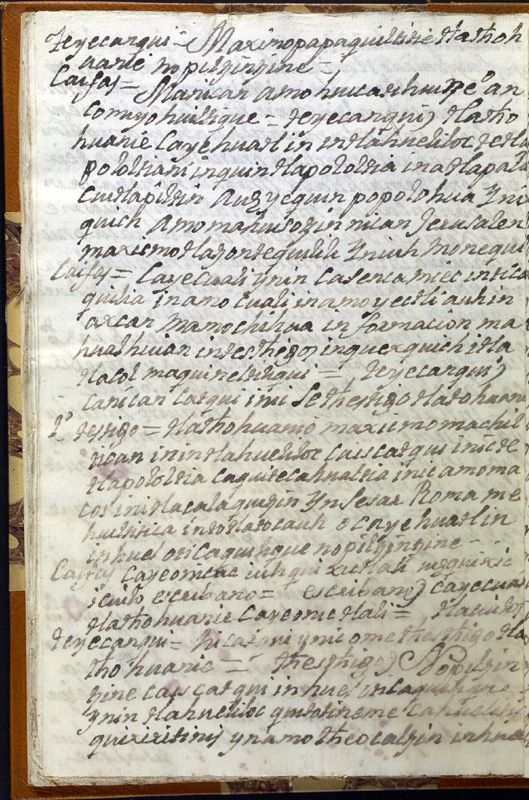 Teyecanqui = Maximopapaquiltitie tlatoh
uanie nopilzintzine =
Caifas = Manican amo hucasihuitze an
comoyohuiltique = teyecanqui) tlatho
huanie Cayehuatl in intlahueliloc tetla
pololtiani inquintlapololtia in atlapal
cuitlapiltzin auh yequin popolohua Yno
quich amomatuitzin nican Jerusalen
maximotlazontequilili Yniuh monequi
Caifas = Cayecuali ynin Casenca miec intla
quilia inamo Cuali inamo yectli auh in
axcan mamochihua in formacion ma
hualhuian intesthigos inquexquich itla
tlacol maquineltitiqui = teyecanqui)
Canican Catqui ini Se thestigo tlatohuanie
1º testigo = tlathohuanie maximomachil
nican inin tlahueliloc Caiscatqui inic te
tlapololtia Caquitecahualtia inic amo ma
cos ini tlacalaquiltzin Ynsesar Roma me
huiltitica intotlatocauh Ocayehuatl in
inhuel oticaquihque nopilzintzine
Caifas Cayeomcac iuhqui ximotlali maquixic
icuilo escribano = escribano) Cayecuali
tlathohuanie Cayeomotlali =
teyecanqui = Nicatqui ynic ome thesthigo tla
tho huanie = thesthigo) Nopilzin
tzine caiscatqui inhuel onicaquihque
ynin tlahueliloc quitotinemi cahueliz
quixixitinis ynamo theocaltzin inhua